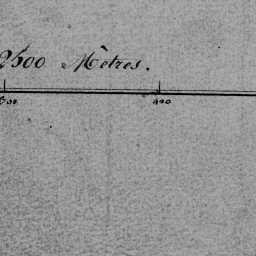 2500 Mètres.
500 400